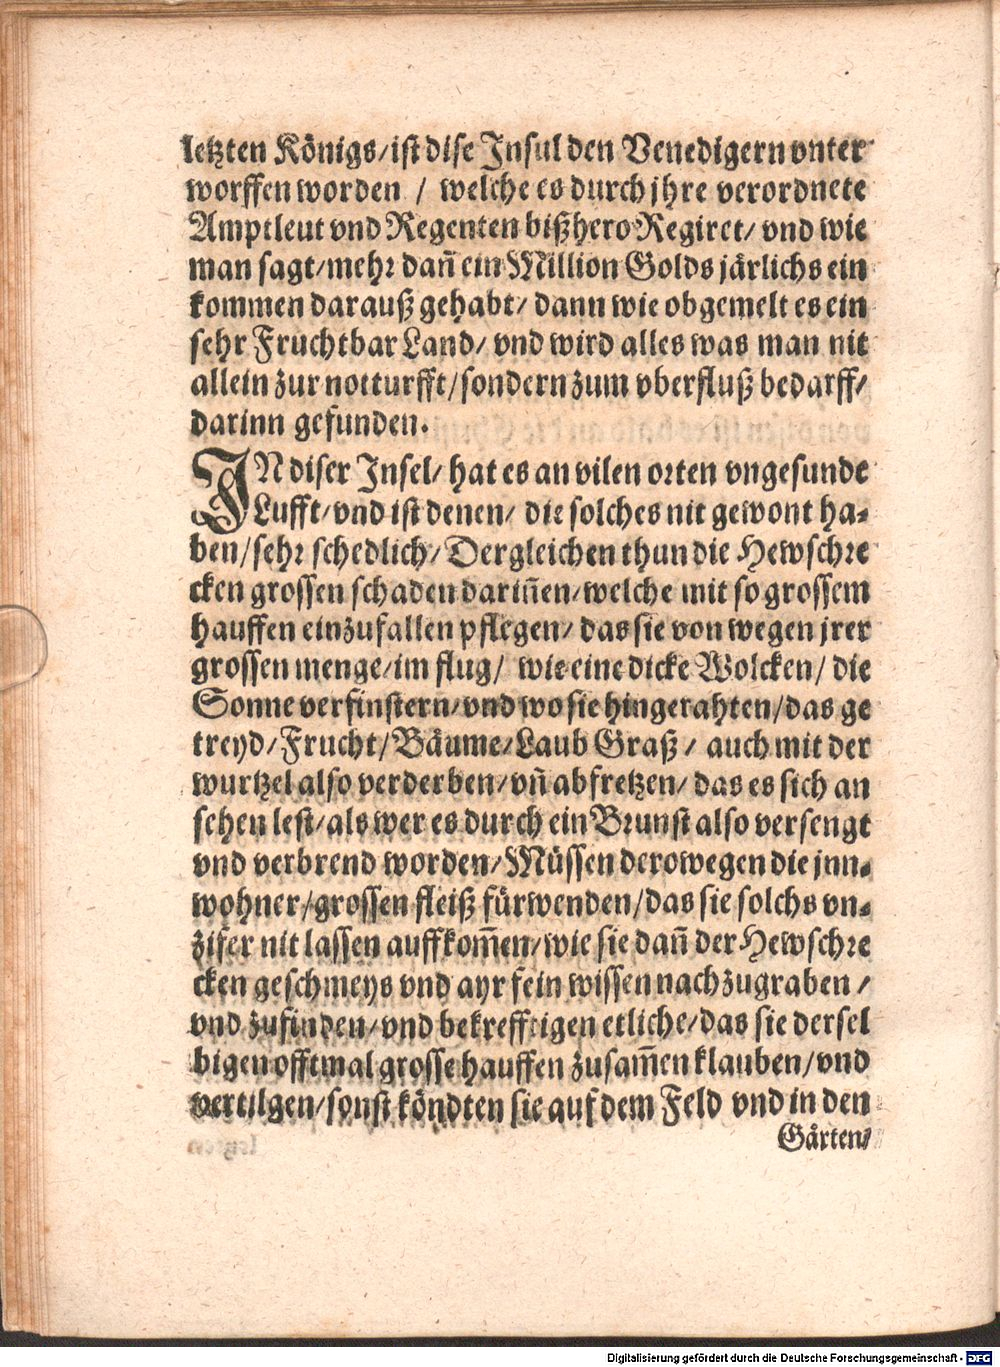 letzten Königs/ist dise Insul den Venedigern vnter
worffen worden / welche es durch jhre verordnete
Amptleut vnd Regenten bißhero Regiret/ vnd wie
man sagt/mehr dañ ein Million Golds järlichs ein
kommen darauß gehabt/ dann wie obgemelt es ein
sehr Fruchtbar Land/ vnd wird alles was man nit
allein zur notturfft/sondern zum vberfluß bedarff/
darinn gefunden.
IN diser Insel/ hat es an vilen orten vngesunde
Lufft/vnd ist denen/ die solches nit gewont ha⸗
ben/sehr schedlich/Dergleichen thun die Hewschre
cken grossen schaden dariñen/welche mit so grossem
hauffen einzufallen pflegen/ das sie von wegen jrer
grossen menge/im flug/ wie eine dicke Wolcken/ die
Sonne verfinstern/vnd wo sie hingerahten/das ge
treyd/Frucht/Bäume/Laub Graß/ auch mit der
wurtzel also verderben/vñ abfretzen/ das es sich an
sehen lest/als wer es durch ein Brunst also versengt
vnd verbrend worden/Müssen derowegen die jnn⸗
wohner/grossen fleiß fürwenden/das sie solchs vn⸗
zifer nit lassen auffkom̃en/wie sie dañ der Hewschre
cken geschmeys vnd ayr fein wissen nachzugraben /
vnd zufinden/vnd bekrefftigen etliche/das sie dersel
bigen offtmal grosse hauffen zusam̃en klauben/vnd
vertilgen/sonst köndten sie auf dem Feld vnd in den
Gärten/
Digitalisierung gefördert durch die Deutsche Forschungsgemeinschaft - DFG